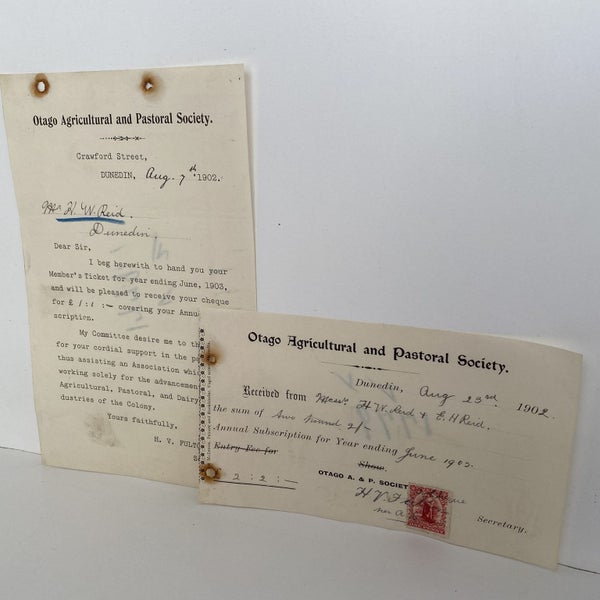 Otago Agricultural and Pastoral Society.
Crawford Street,
DUNEDIN, Aug. 7th 1902.
H. W. Reid.
Dunedin.
Dear Sir,
I beg herewith to hand you your
Member's Ticket for year ending June, 1903,
and will be pleased to receive your cheque
for £ 1:1:- covering your Annu
scription.
My Committee desire me to th
for your cordial support in the pa
thus assisting an Association whi
working solely for the advancemen
Agricultural, Pastoral, and Dairy
dustries of the Colony.
Yours faithfully,
H. V. FULTO
Otago Agricultural and Pastoral Society.
Dunedin, Aug 23rd 1902.
Received from Messrs H. W. Reid & E. H. Reid.
the sum of two pound 2/-
Annual Subscription for Year ending June 1903.
Entry Fee for Show.
OTAGO A. & P. SOCIET
2 : 2 : -
H V
Secretary.